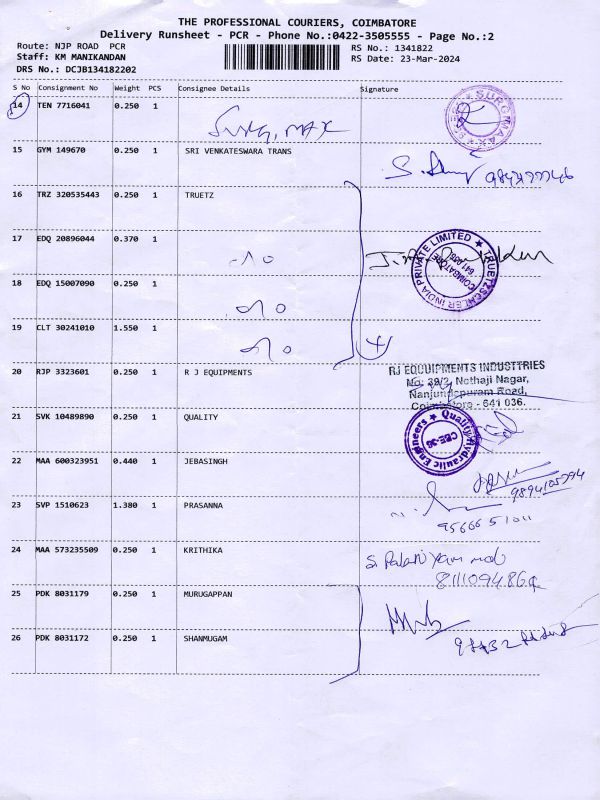 THE PROFESSIONAL COURIERS, COIMBATORE
Delivery Runsheet - PCR - Phone No.:0422-3505555 - Page No.:2
Route: NJP ROAD PCR
RS No.: 1341822
Staff: KM MANIKANDAN
RS Date: 23-Mar-2024
DRS No.: DCJB134182202
S No Consignment No Weight PCS Consignee Details Signature
14 TEN 7716041 0.250 1
Surg, MAX
SURG MAX
15 GYM 149670 0.250 1 SRI VENKATESWARA TRANS
16 TRZ 320535443 0.250 1 TRUETZ
17 EDQ 20896044 0.370 1
TRUETZSCHLER INDIA PRIVATE LIMITED
COIMBATORE
18 EDQ 15007090 0.250 1
19 CLT 30241010 1.550 1
4
20 RJP 3323601 0.250 1 R J EQUIPMENTS
RJ EQQUIPMENTS INDUSTTRIES
No: 39/2, Nethaji Nagar,
Nanjundapuram Road,
Coimbatore - 641 036.
21 SVK 10489890 0.250 1 QUALITY
Quality Hydraulic Engineers
CBE-36
22 MAA 600323951 0.440 1 JEBASINGH
9894105774
23 SVP 1510623 1.380 1 PRASANNA
95666 51011
24 MAA 573235509 0.250 1 KRITHIKA
25 PDK 8031179 0.250 1 MURUGAPPAN
26 PDK 8031172 0.250 1 SHANMUGAM